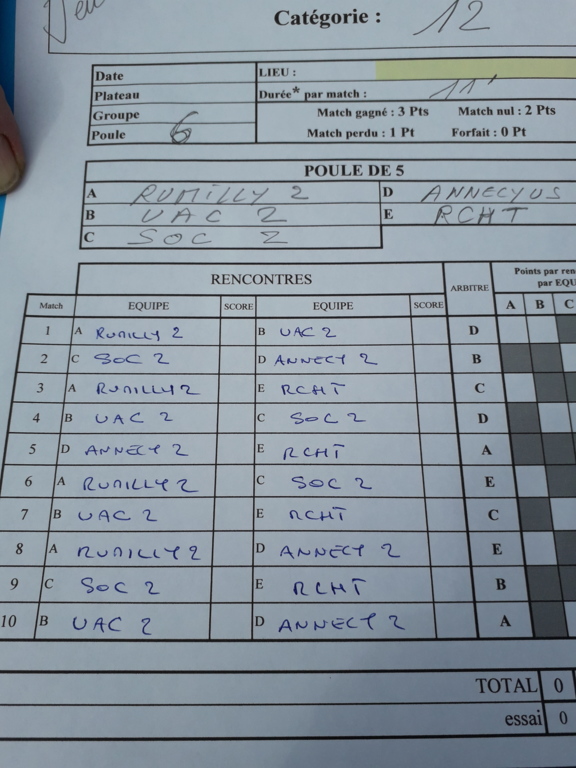 Catégorie : 12
Date
LIEU :
Plateau
Durée* par match : 11'
Groupe
Match gagné : 3 Pts Match nul : 2 Pts
Poule 6
Match perdu : 1 Pt Forfait : 0 Pt
POULE DE 5
A RUMILLY 2 D ANNECYUS
B UAC 2 E RCHT
C SOC 2
RENCONTRES ARBITRE Points par ren
par EQU
Match EQUIPE SCORE EQUIPE SCORE A B C
1 A RUMILLY 2 B UAC 2 D
2 C SOC 2 D ANNECY 2 B
3 A RUMILLY 2 E RCHT C
4 B UAC 2 C SOC 2 D
5 D ANNECY 2 E RCHT A
6 A RUMILLY 2 C SOC 2 E
7 B UAC 2 E RCHT C
8 A RUMILLY 2 D ANNECY 2 E
9 C SOC 2 E RCHT B
10 B UAC 2 D ANNECY 2 A
TOTAL 0
essai 0